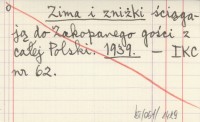 Zima i zniżki ściąga-
ją do Zakopanego gości z
całej Polski. 1939. — IKC
nr 62.